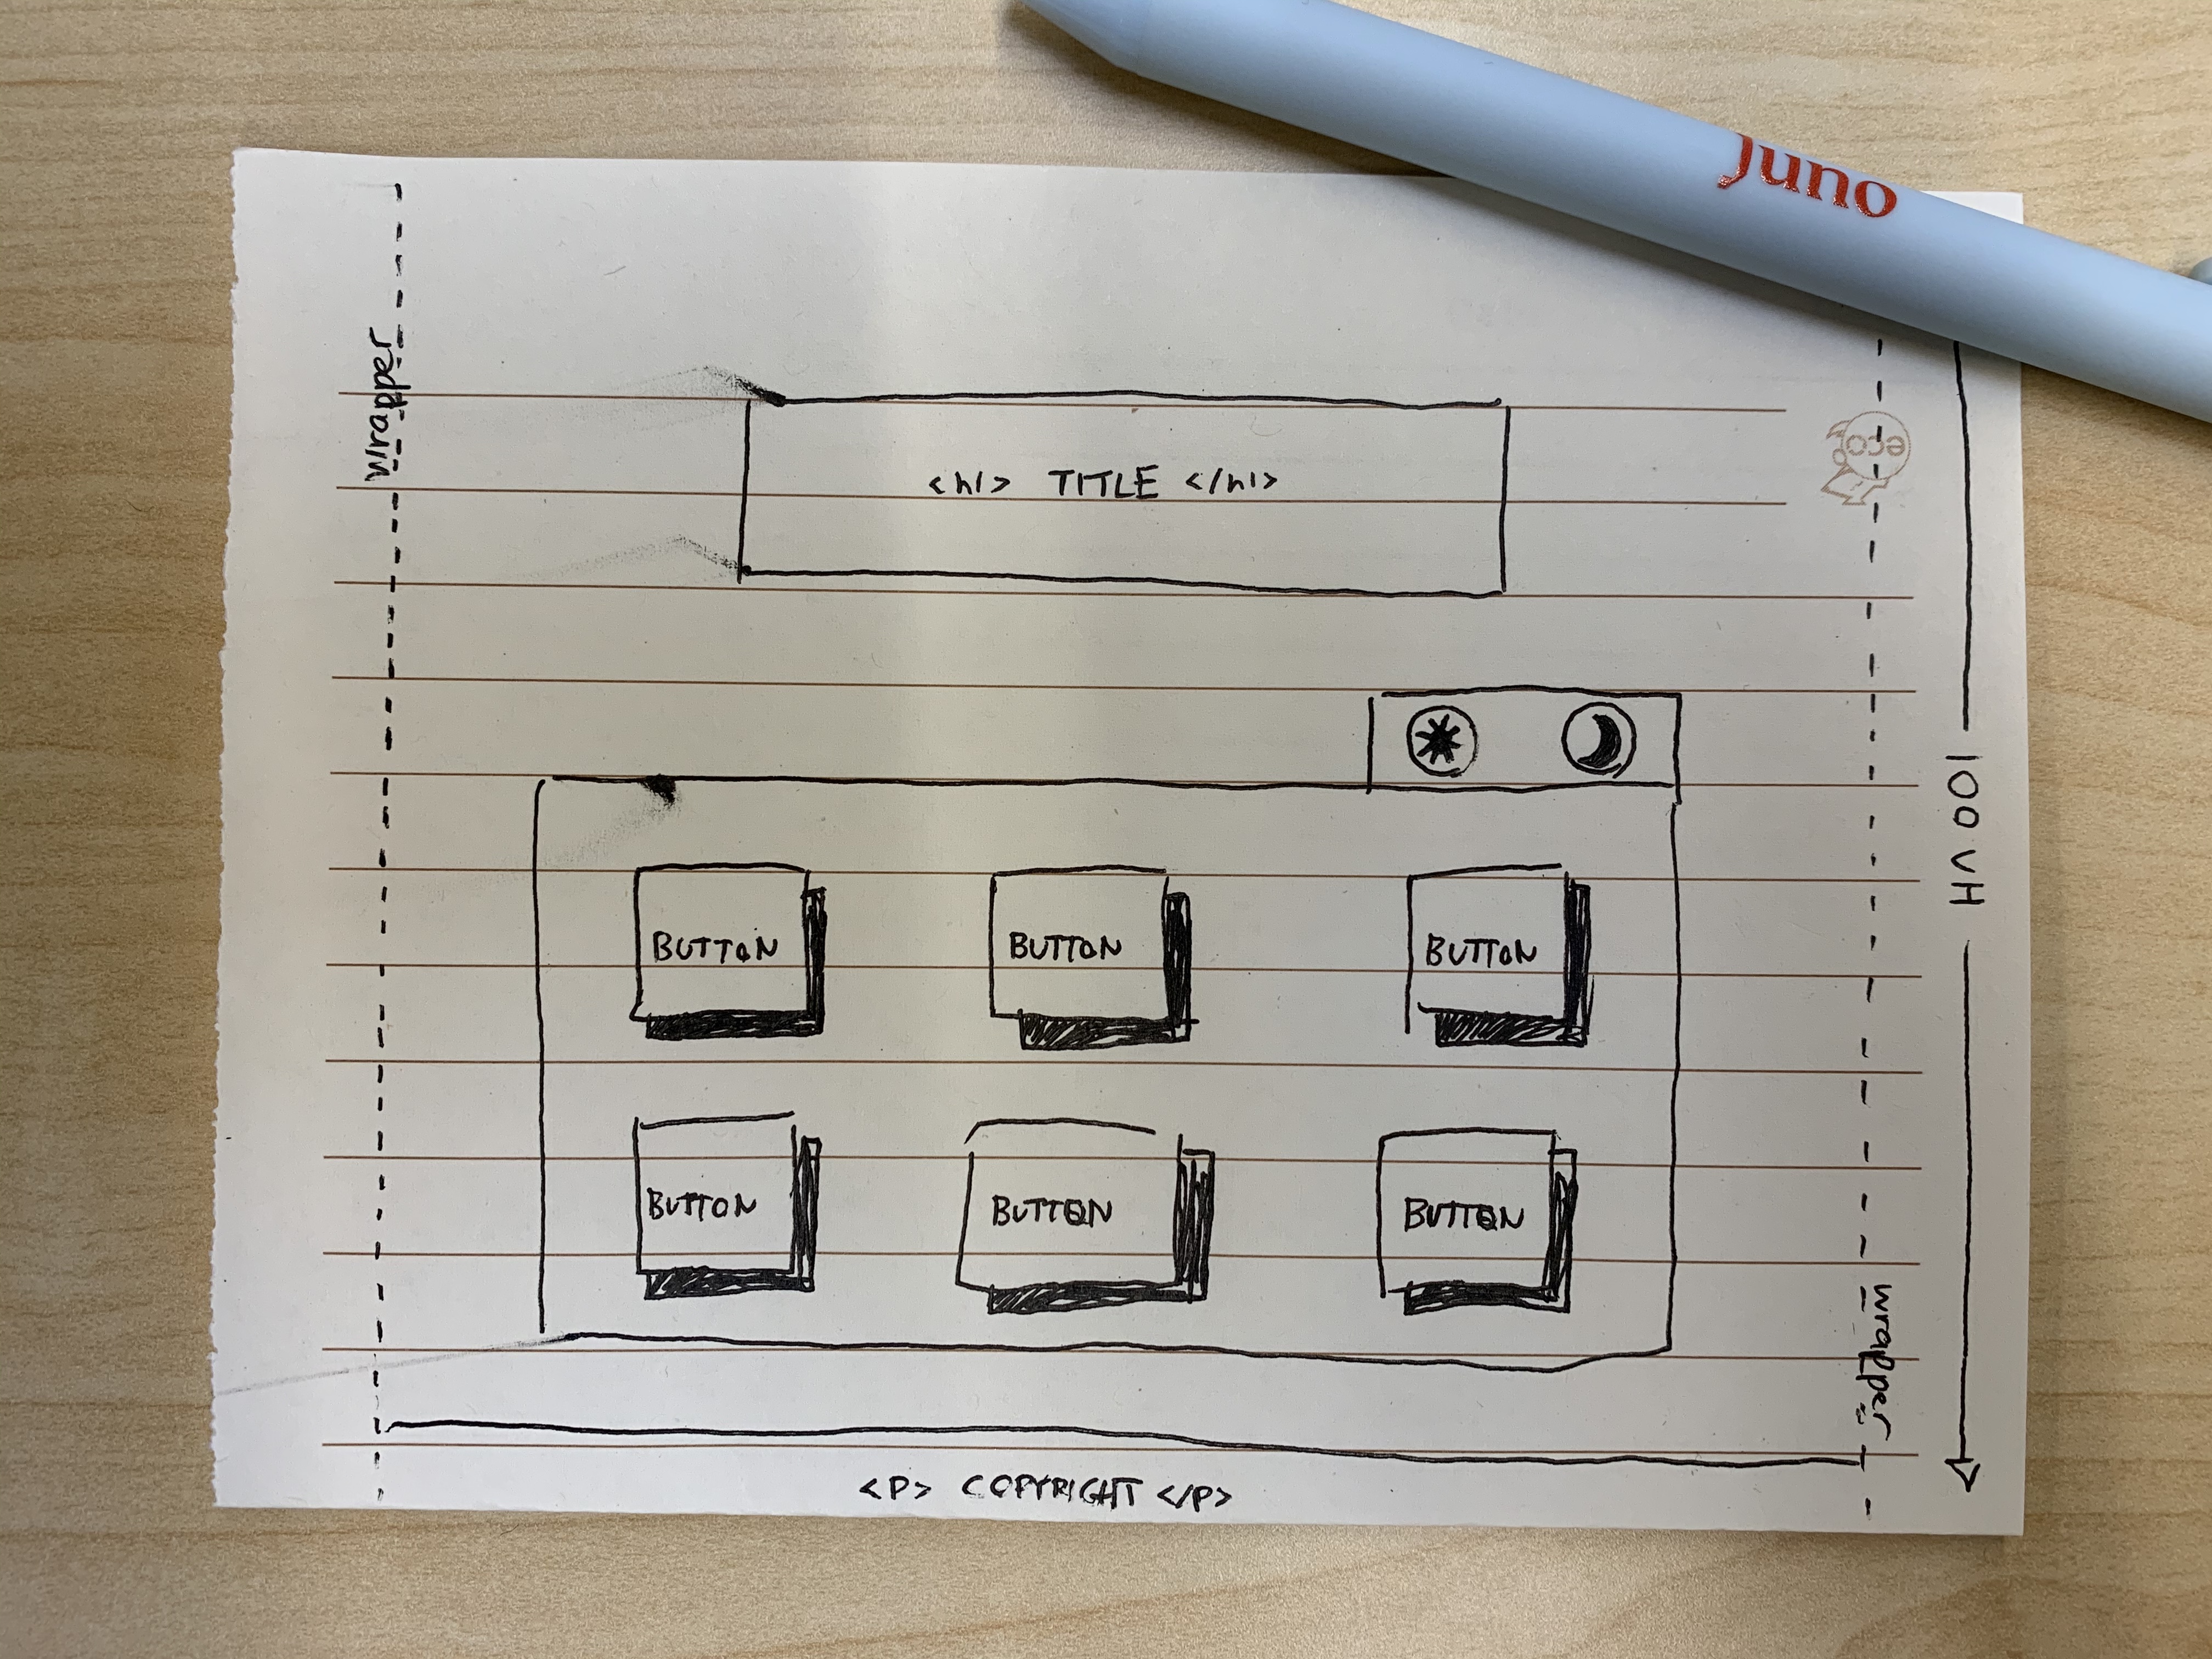 Juno
wrapper
eco
<h1> TITLE </h1>
100 VH
BUTTON BUTTON BUTTON
BUTTON BUTTON BUTTON
wrapper
<P> COPYRIGHT </P>